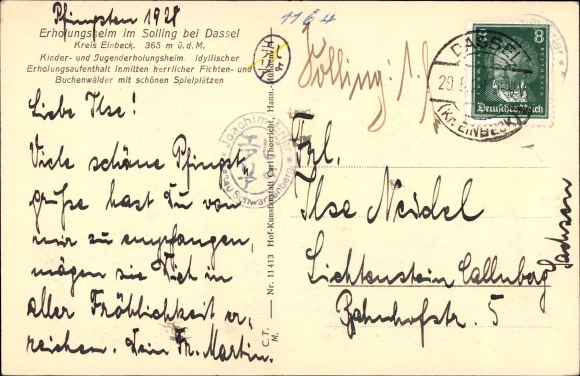 Pfingsten 1928
Erholungsheim im Solling bei Dassel
Kreis Einbeck. 365 m ü. d. M.
Kinder- und Jugenderholungsheim. Idyllischer
Erholungsaufenthalt inmitten herrlicher Fichten- und
Buchenwälder mit schönen Spielplätzen
Liebe Ilse!
Viele schöne Pfingst-
grüße hast Du von
mir zu empfangen,
mögen sie Dich in
aller Fröhlichkeit er,
reichen. Dein Fr. Martin.
1164
Solling
C. T. M.
Nr. 11413 Hof-Kunstanstalt Carl Thoericht, Hann.-Münden
Joachim
Schwarzenberg
8 8
Deutsches Reich
DASSEL
29.5.
(Kr. EINBECK)
Frl.
Ilse Neidel
Lichtenstein Callnberg
Sachsen
Bahnhofstr. 5